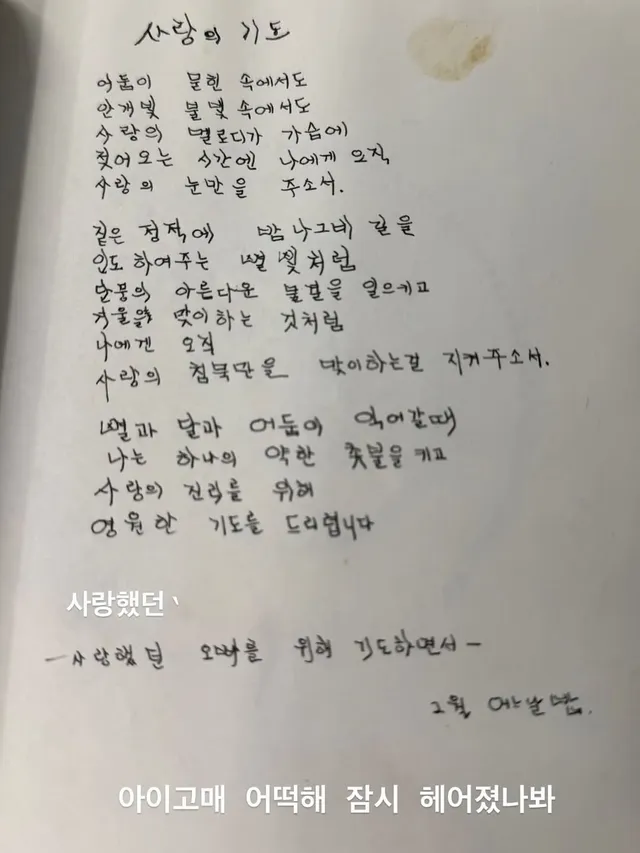 사랑의 기도
어둠이 묻힌 속에서도
안개빛 불빛 속에서도
사랑의 멜로디가 가슴에
젖어오는 시간엔 나에게 오직
사랑의 눈만을 주소서.
짙은 정적에 밤 나그네 길을
인도하여주는 별빛처럼
단풍의 아름다운 물결을 일으키고
겨울을 맞이하는 것처럼
나에겐 오직
사랑의 침묵만을 맞이하는걸 지켜주소서.
별과 달과 어둠이 익어갈때
나는 하나의 약한 촛불을 키고
사랑의 진리를 위해
영원한 기도를 드리렵니다
사랑했던
-사랑했던 오빠를 위해 기도하면서-
2월 어느날 밤.
아이고매 어떡해 잠시 헤어졌나봐